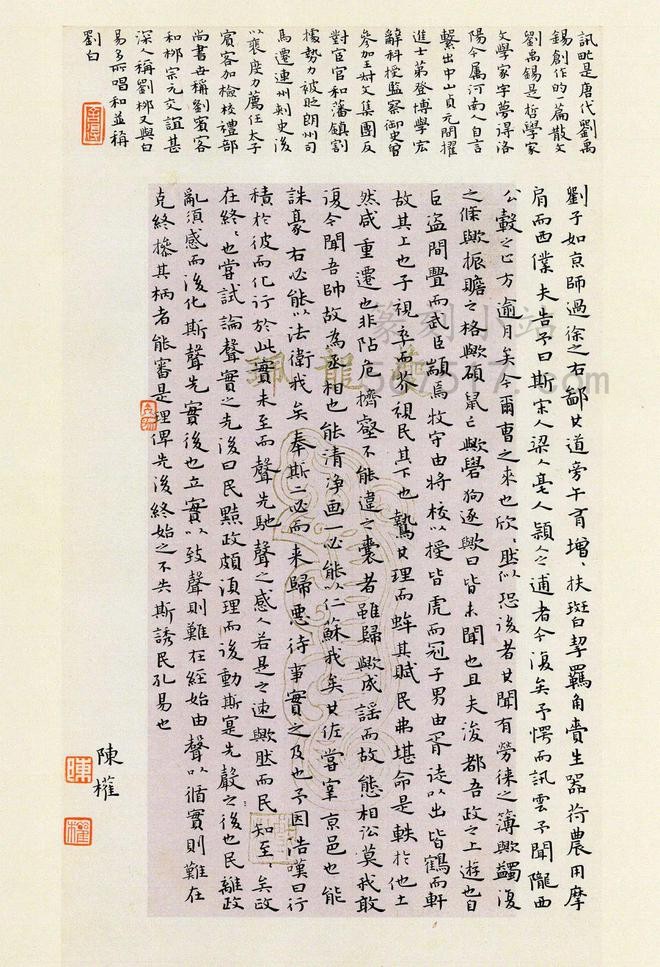 訊甿是唐代劉禹
錫創作的一篇散文
劉禹錫是哲學家
文學家字夢得洛
陽今屬河南人自言
繫出中山貞元間擢
進士第登博學宏
辭科授監察御史曾
參加王叔文集團反
對宦官和藩鎮割
據勢力被貶朗州司
馬遷連州刺史後
以裴度力薦任太子
賓客加檢校禮部
尚書世稱劉賓客
和柳宗元交誼甚
深人稱劉柳又與白
易多所唱和並稱
劉白
劉子如京師過徐之右鄙其道旁午有增、扶斑白挈羈角賫生器荷農用摩
肩而西僕夫告予曰斯宋人梁人亳人潁人之逋者今復矣予愕而訊雲予聞隴西
公轂之止方逾月矣今爾曹之來也欣、然似恐後者其聞有勞徠之簿歟蠲復
之條歟振贍之格歟碩鼠亡歟瘈狗逐歟曰皆未聞也且夫浚都吾政之上遊也自
巨盜間釁而武臣顓焉牧守由將校以授皆虎而冠子男由胥徒以出皆鶴而軒
故其上也子視卒而芥視民其下也鷙其理而蛑其賦民弗堪命是軼於他土
然咸重遷也非阽危擠壑不能違之曩者雖歸歟成謠而故態相訟莫我敢
復今聞吾帥故為丞相也能清淨画一必能以仁蘇我矣其佐嘗宰京邑也能
誅豪右必能以法衛我矣奉斯二必而来歸惡待事實之及也予因浩嘆曰行
積於彼而化行於此實未至而聲先馳聲之感人若是之速歟然而民知至、矣政
在終、也嘗試論聲實之先後曰民黠政頗須理而後動斯寔先聲之後也民離政
亂須感而後化斯聲先實後也立實以致聲則難在經始由聲以循實則難在
克終操其柄者能審是理俾先後終始之不失斯誘民孔易也
陳櫂
篆刻小站